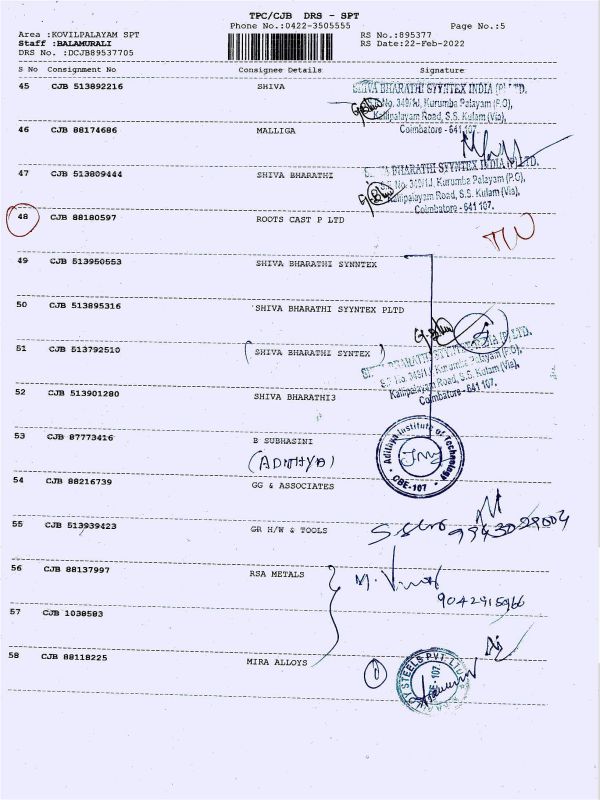 TPC/CJB DRS - SPT
Phone No.:0422-3505555 Page No.:5
Area :KOVILPALAYAM SPT RS No.:895377
Staff :BALAMURALI RS Date:22-Feb-2022
DRS No. :DCJB89537705
S No Consignment No Consignee Details Signature
45 CJB 513892216 SHIVA
SHIVA BHARATHI SYYNTEX INDIA (P) LTD.
S.F.No. 349/1J, Kurumba Palayam (P.O),
Kallipalayam Road, S.S. Kulam (Via),
Coimbatore - 641 107.
46 CJB 88174686 MALLIGA
47 CJB 513809444 SHIVA BHARATHI
SHIVA BHARATHI SYYNTEX INDIA (P) LTD.
S.F. No. 349/1J, Kurumba Palayam (P.O),
Kallipalayam Road, S.S. Kulam (Via),
Coimbatore - 641 107.
48 CJB 88180597 ROOTS CAST P LTD
49 CJB 513950553 SHIVA BHARATHI SYNNTEX
50 CJB 513895316 SHIVA BHARATHI SYYNTEX PLTD
51 CJB 513792510 (SHIVA BHARATHI SYNTEX)
S.F. No. 349/1J, Kurumba Palayam (P.O),
Kallipalayam Road, S.S. Kulam (Via),
Coimbatore - 641 107.
52 CJB 513901280 SHIVA BHARATHI3
53 CJB 87773416 B SUBHASINI
(ADITHYA)
Adithya Institute of Technology
CBE-107
54 CJB 88216739 GG & ASSOCIATES
55 CJB 513939423 GR H/W & TOOLS
56 CJB 88137997 RSA METALS
9042915966
57 CJB 1038583
58 CJB 88118225 MIRA ALLOYS
STEELS PVT. LTD